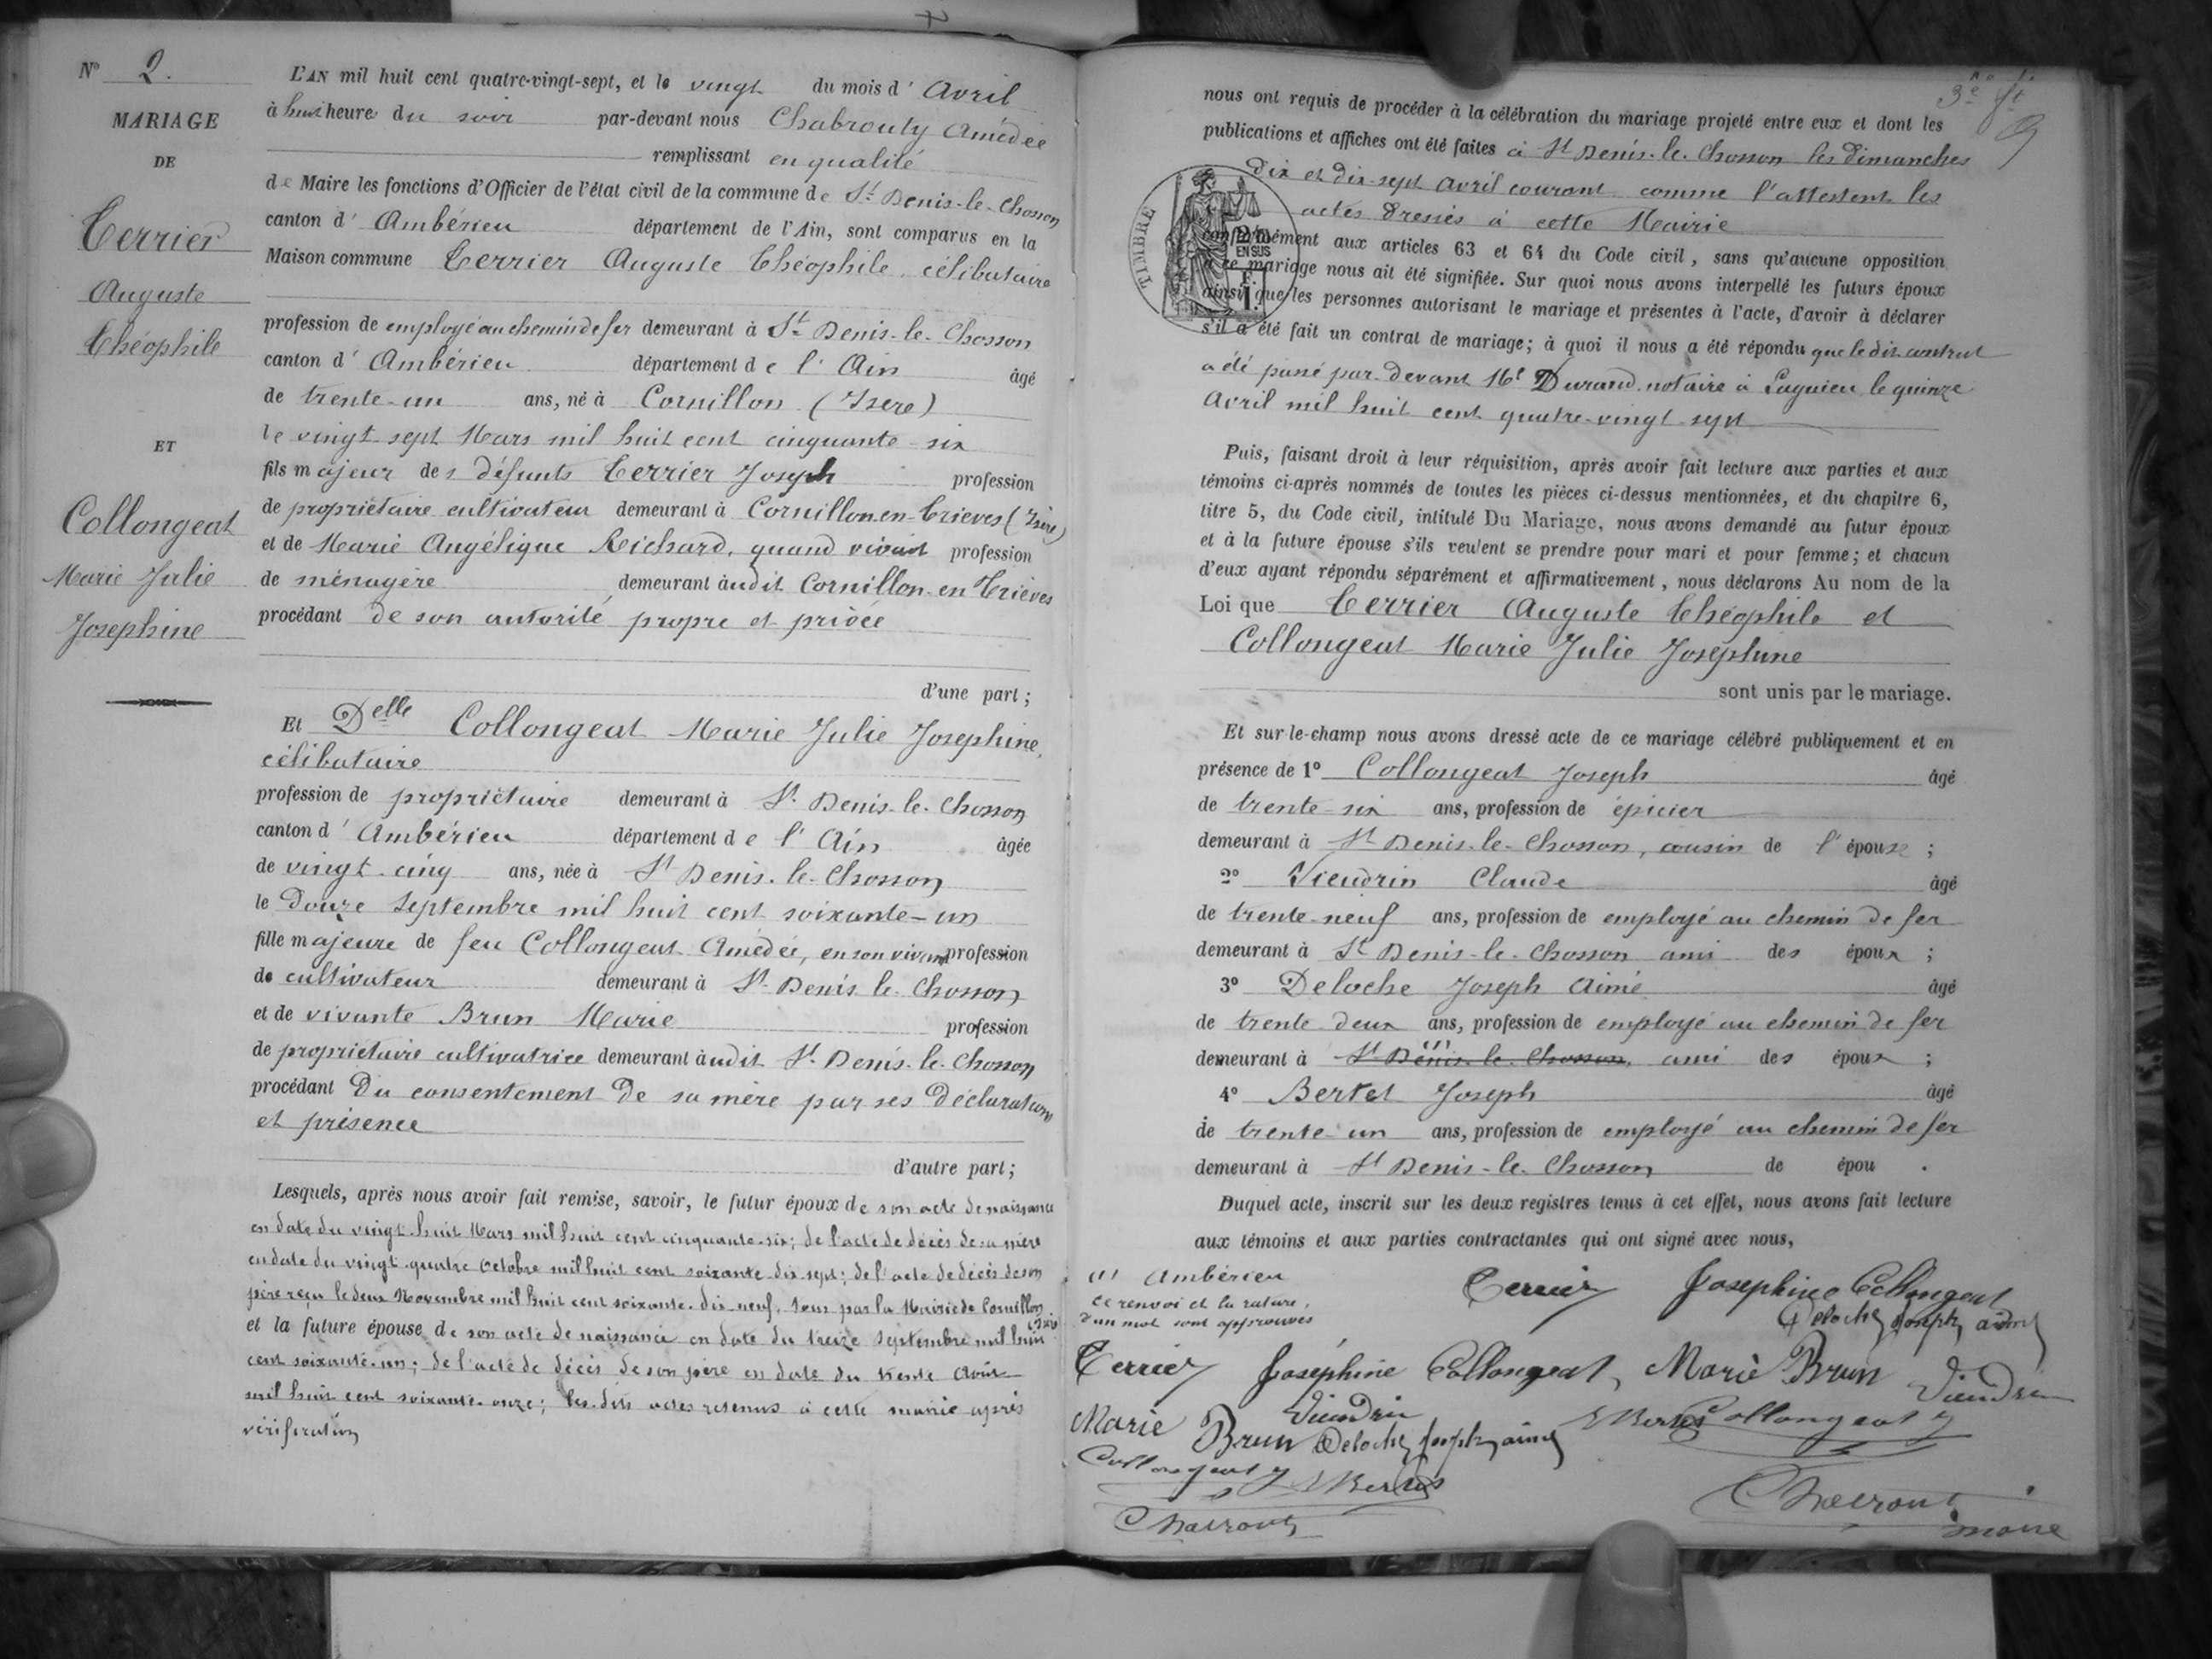 N° 2.
MARIAGE
DE
Terrier
Auguste
Théophile
ET
Collongeat
Marie Julie
Josephine
L'AN mil huit cent quatre-vingt-sept, et le vingt du mois d' Avril
à huit heure du soir par-devant nous Chabrouty Amédée
remplissant en qualité
de Maire les fonctions d'Officier de l'état civil de la commune de St Denis-le-Chosson
canton d' Ambérieu département de l'Ain, sont comparus en la
Maison commune Terrier Auguste Théophile célibataire
profession de employé au chemin de fer demeurant à St Denis-le-Chosson
canton d' Ambérieu département de l' Ain âgé
de trente-un ans, né à Cornillon (Isere)
le vingt-sept Mars mil huit cent cinquante-six
fils majeur des défunts Terrier Joseph profession
de propriétaire cultivateur demeurant à Cornillon-en-Trieves (Isère)
et de Marie Angélique Richard, quand vivait profession
de ménagère demeurant audit Cornillon-en-Trièves
procédant de son autorité propre et privée
d'une part;
Et Delle Collongeat Marie Julie Josephine,
célibataire
profession de propriétaire demeurant à St Denis-le-Chosson
canton d' Ambérieu département de l' Ain âgée
de vingt-cinq ans, née à St Denis-le-Chosson
le Douze Septembre mil huit cent soixante-un
fille majeure de feu Collongeat Amédée, en son vivant profession
de cultivateur demeurant à St Denis le Chosson
et de vivante Brun Marie profession
de propriétaire cultivatrice demeurant audit St Denis-le-Chosson
procédant Du consentement De sa mère par ses Déclarations
et présence
d'autre part;
Lesquels, après nous avoir fait remise, savoir, le futur époux de son acte de naissance
en date du vingt-huit Mars mil huit cent cinquante-six; de l'acte de décès de sa mère
en date du vingt-quatre Octobre mil huit cent soixante-dix-sept; de l'acte de décès de son
père reçu le deux Novembre mil huit cent soixante-dix-neuf, tous par la Mairie de Cornillon (Isère)
et la future épouse de son acte de naissance en date du treize Septembre mil huit
cent soixante-un; de l'acte de décès de son père en date du trente Août
mil huit cent soixante-onze; les dits actes retenus à cette mairie après
vérification
nous ont requis de procéder à la célébration du mariage projeté entre eux et dont les
publications et affiches ont été faites à St Denis-le-Chosson les dimanches
dix et dix-sept Avril courant comme l'attestent les
actes dressés à cette Mairie
conformément aux articles 63 et 64 du Code civil, sans qu'aucune opposition
ce mariage nous ait été signifiée. Sur quoi nous avons interpellé les futurs époux
ainsi que les personnes autorisant le mariage et présentes à l'acte, d'avoir à déclarer
s'il a été fait un contrat de mariage; à quoi il nous a été répondu que le dit contrat
a été passé par-devant Mt Durand notaire à Lagnieu le quinze
Avril mil huit cent quatre-vingt-sept
TIMBRE
EN SUS
Puis, faisant droit à leur réquisition, après avoir fait lecture aux parties et aux
témoins ci-après nommés de toutes les pièces ci-dessus mentionnées, et du chapitre 6,
titre 5, du Code civil, intitulé Du Mariage, nous avons demandé au futur époux
et à la future épouse s'ils veulent se prendre pour mari et pour femme; et chacun
d'eux ayant répondu séparément et affirmativement, nous déclarons Au nom de la
Loi que Terrier Auguste Théophile et
Collongeat Marie Julie Joséphine
sont unis par le mariage.
Et sur-le-champ nous avons dressé acte de ce mariage célébré publiquement et en
présence de 1° Collongeat Joseph âgé
de trente-six ans, profession de épicier
demeurant à St Denis-le-Chosson, cousin de l' épouse;
2° Vieudrin Claude âgé
de trente-neuf ans, profession de employé au chemin de fer
demeurant à St Denis-le-Chosson ami des époux;
3° Deloche Joseph Aimé âgé
de trente-deux ans, profession de employé au chemin de fer
demeurant à St Denis-le-Chosson, (1) ami des époux;
4° Bertet Joseph âgé
de trente-un ans, profession de employé au chemin de fer
demeurant à St Denis-le-Chosson de épou .
Duquel acte, inscrit sur les deux registres tenus à cet effet, nous avons fait lecture
aux témoins et aux parties contractantes qui ont signé avec nous,
(1) Ambérieu
ce renvoi et la rature,
d'un mot sont approuvés
Terrier Josephine Collongeat
Deloche Joseph aimé
Terrier Joséphine Collongeat, Marie Brun Vieudrin
Marie Brun Vieudrin Deloche Joseph aimé Collongeat
Collongeat
maire